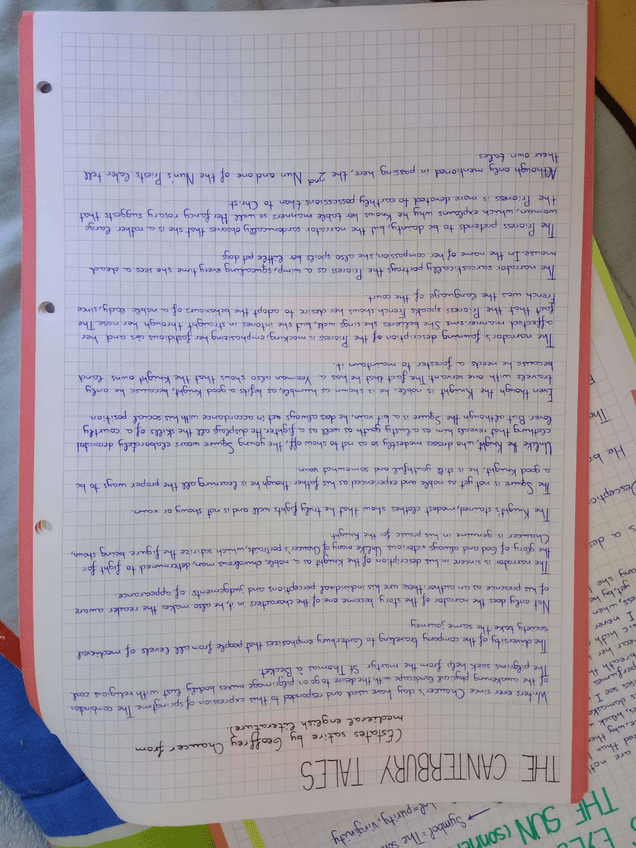 THE CANTERBURY TALES
(Estates satire by Geoffrey Chaucer from
medieval english literature.
Writers ever since Chaucer's day have used and responded to this expression of springtime. The
of the awakening physical landscape with the desire to go on pilgrimage mixes bodily lust with religious zeal.
The pilgrims seek help from the martyr St Thomas à Becket
The diversity of the company traveling to Canterbury emphasizes that people from all levels of medieval
society take the same journey
Not only does the narrator of the story become one of the characters in it, he also makes the reader aware
of his presence as an author: these are his individual perceptions and judgements of appearance.
The narrator is sincere in his description of the Knight as a noble, chivalrous man, determined to fight for
the glory of God and always victorious. Unlike many of Chaucer's portraits, which satirize the figure being shown,
Chaucer is genuine in his praise for the Knight
The Knight's stained, modest clothes show that he truly fights well and is not showy or vain.
The Squire is not yet as noble and experienced as his father though he is learning all the proper ways to be
a good Knight, he is still youthful and somewhat vain.
Unlike the Knight, who dresses modestly so as not to show off, the young Squire wears elaborately decorated
clothing that reveals him as a lusty youth as well as a fighter. He displays all the skills of a courtly
lover. But although the Squire is a bit vain, he does always act in accordance with his social position.
Even though the Knight is noble, he is shown as humble, as befits a good Knight, because he only
travels with one servant. The fact that he has a Yeoman also shows that the Knight owns land
because he needs a forester to mountain it.
The narrator's fawning description of the Prioress is mocking, emphasizing her fastidious airs and her
affected mannerisms. She believes she sings well, but she intones in straight through her nose. The
fact that the Prioress speaks French shows her desire to adopt the behaviours of a noble lady, since
French was the language of the court
The narrator sarcastically portrays the Prioress as a wimp, squeaking every time she sees a dead
mouse. In the name of her compassion, she also spoils her little pet dog
The Prioress pretends to be dainty, but the narrator sardonically observes that she is a rather large
woman, which explains why he knows her table manners so well. The fancy rosary suggests that
the Prioress is more devoted to earthly possessions than to Christ
Although only mentioned in passing here, the 2nd Nun and one of the Nun's Priests later tell
their own tales
THE SUN (sonne
Symbol = The son
=purity, virginity